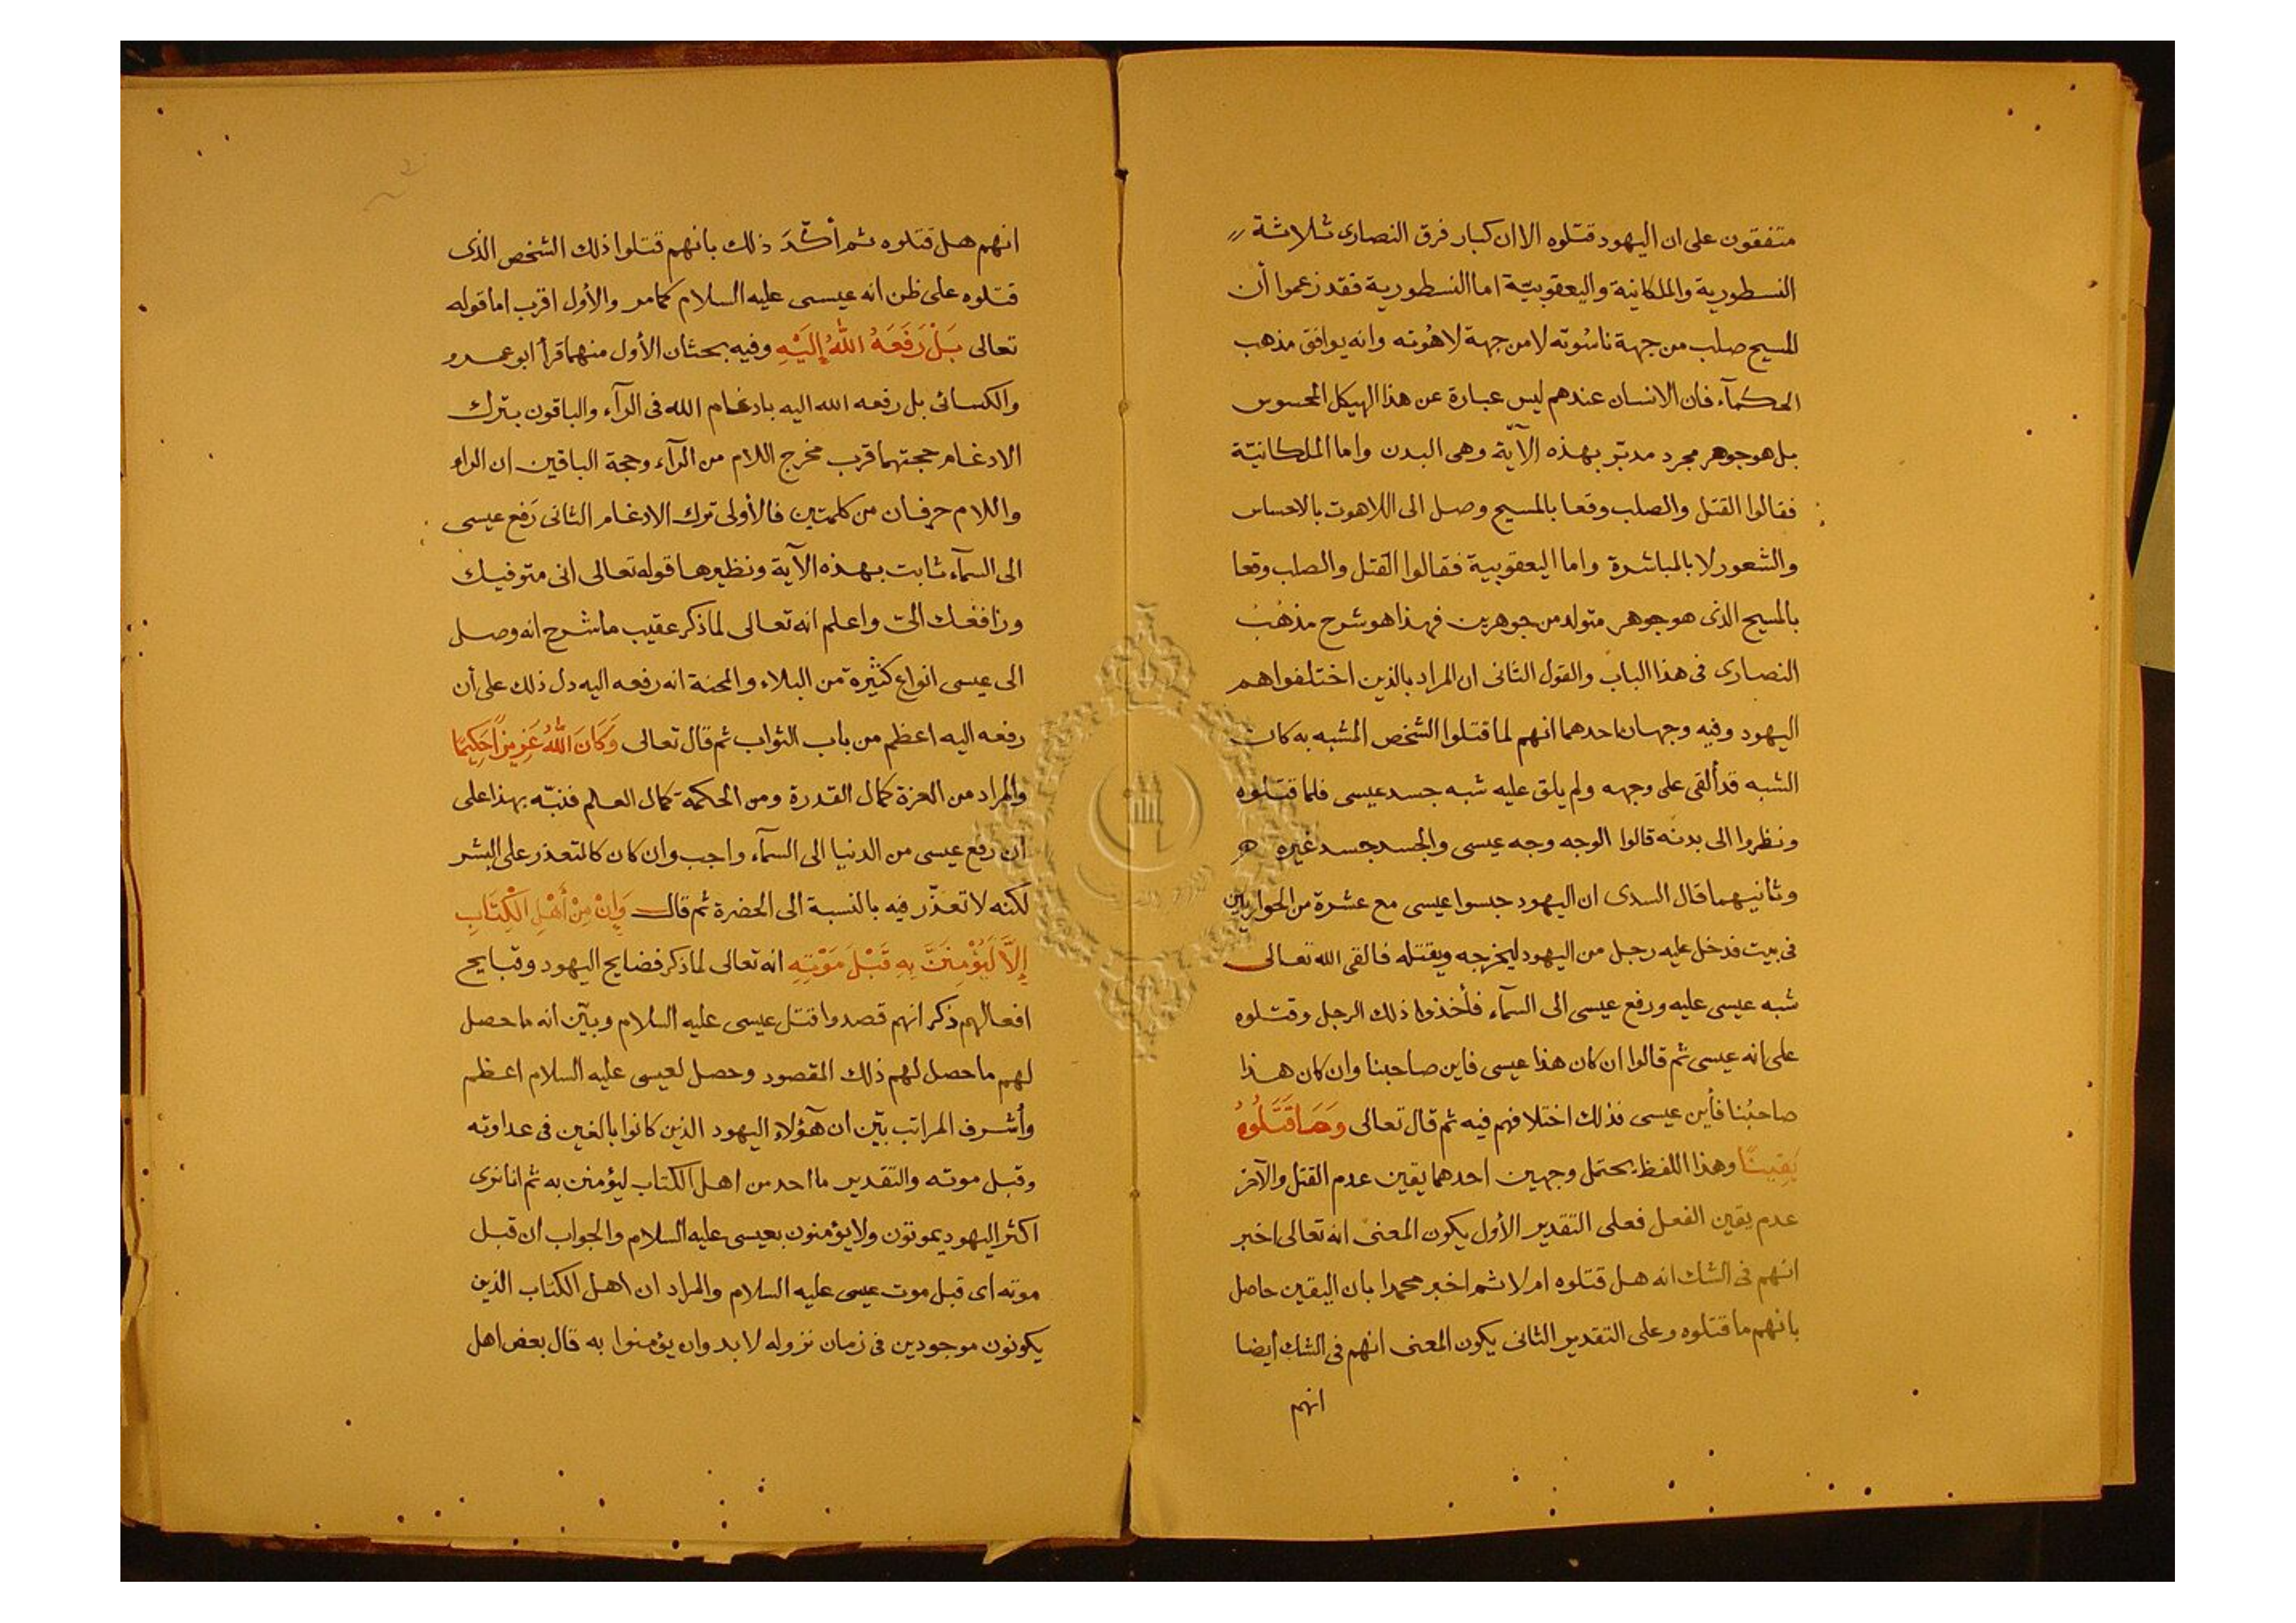 متفقون على ان اليهود قتلوه الا ان كبار فرق النصارى ثلاثة
النسطورية والملكانية واليعقوبيّة اما النسطورية فقد زعموا أن
المسيح صلب من جهة ناسُوته لا من جهة لاهُوته وانه يوافق مذهب
الحكمآء فان الانسان عندهم ليس عبارة عن هذا الهيكل المحسوس
بل هو جوهر مجرد مدبّر بهذه الآية وهى البدن واما الملكانيّة
فقالوا القتل والصلب وقعا بالمسيح وصل الى اللاهوت بالاحساس
والشعور لا بالمباشرة واما اليعقوبية فقالوا القتل والصلب وقعا
بالمسيح الذى هو جوهر متولد من جوهرين فهذا هو شرح مذهبُ
النصارى فى هذا الباب والقول الثانى ان المراد بالذين اختلفوا هم
اليهود وفيه وجهان احدهما انهم لما قتلوا الشخص المشبه به كان
الشبه قد ألقى على وجهه ولم يلق عليه شبه جسد عيسى فلما قتلوه
ونظروا الى بدنه قالوا الوجه وجه عيسى والجسد جسد غيره
وثانيهما قال السدى ان اليهود حبسوا عيسى مع عشرة من الحواريين
فى بيت فدخل عليه رجل من اليهود ليخرجه ويقتله فالقى الله تعالى
شبه عيسى عليه ورفع عيسى الى السمآء فأخذوا ذلك الرجل وقتلوه
على انه عيسى ثم قالوا ان كان هذا عيسى فاين صاحبنا وان كان هذا
صاحبُنا فأين عيسى فذلك اختلافهم فيه ثم قال تعالى وَمَا قَتَلُوهُ
يَقِينًا وهذا اللفظ يحتمل وجهين احدهما يقين عدم القتل والآخر
عدم يقين الفعل فعلى التقدير الأول يكون المعنى انه تعالى اخبر
انهم فى الشك انه هل قتلوه ام لا ثم اخبر محمدا بان اليقين حاصل
بانهم ما قتلوه وعلى التقدير الثانى يكون المعنى انهم فى الشك أيضا
انهم
انهم هل قتلوه ثم أكّدَ ذلك بانهم قتلوا ذلك الشخص الذى
قتلوه على ظن انه عيسى عليه السلام كما مر والأول اقرب اما قوله
تعالى بَلْ رَفَعَهُ اللهُ إِلَيْهِ وفيه بحثان الأول منهما قرأ ابو عمرو
والكسائى بل رفعه الله اليه بادغام الله فى الرآء والباقون بترك
الادغام حجتهما قرب مخرج اللام من الرآء وحجة الباقين ان الراء
واللام حرفان من كلمتين فالأولى ترك الادغام الثانى رَفع عيسى
الى السمآء ثابت بهذه الآية ونظيرها قوله تعالى انى متوفيك
ورافعك الىّ واعلم انه تعالى لما ذكر عقيب ما شرح انه وصل
الى عيسى انواع كثيرة من البلاء والمحنة انه رفعه اليه دل ذلك على أن
رفعه اليه اعظم من باب الثواب ثم قال تعالى وَكَانَ اللهُ عَزِيزًا حَكِيمًا
والمراد من العزة كمال القدرة ومن الحكمة كمال العلم فنبّه بهذا على
أن رفع عيسى من الدنيا الى السمآء واجب وان كان كالمتعذر على البشر
لكنه لا تعذّر فيه بالنسبة الى الحضرة ثم قال وَإِنْ مِنْ أَهْلِ الْكِتَابِ
إِلَّا لَيُؤْمِنَنَّ بِهِ قَبْلَ مَوْتِهِ انه تعالى لما ذكر فضايح اليهود وقبايح
افعالهم ذكر انهم قصدوا قتل عيسى عليه السلام وبيّن انه ما حصل
لهم ما حصل لهم ذلك المقصود وحصل لعيسى عليه السلام اعظم
وأشرف المراتب بيّن ان هَؤلاء اليهود الذين كانوا بالغين فى عداوته
وقبل موته والتقدير ما احد من اهل الكتاب ليؤمنن به ثم انا نرى
اكثر اليهود يموتون ولا يؤمنون بعيسى عليه السلام والجواب ان قبل
موته اى قبل موت عيسى عليه السلام والمراد ان اهل الكتاب الذين
يكونون موجودين فى زمان نزوله لا بد وان يؤمنوا به قال بعض اهل